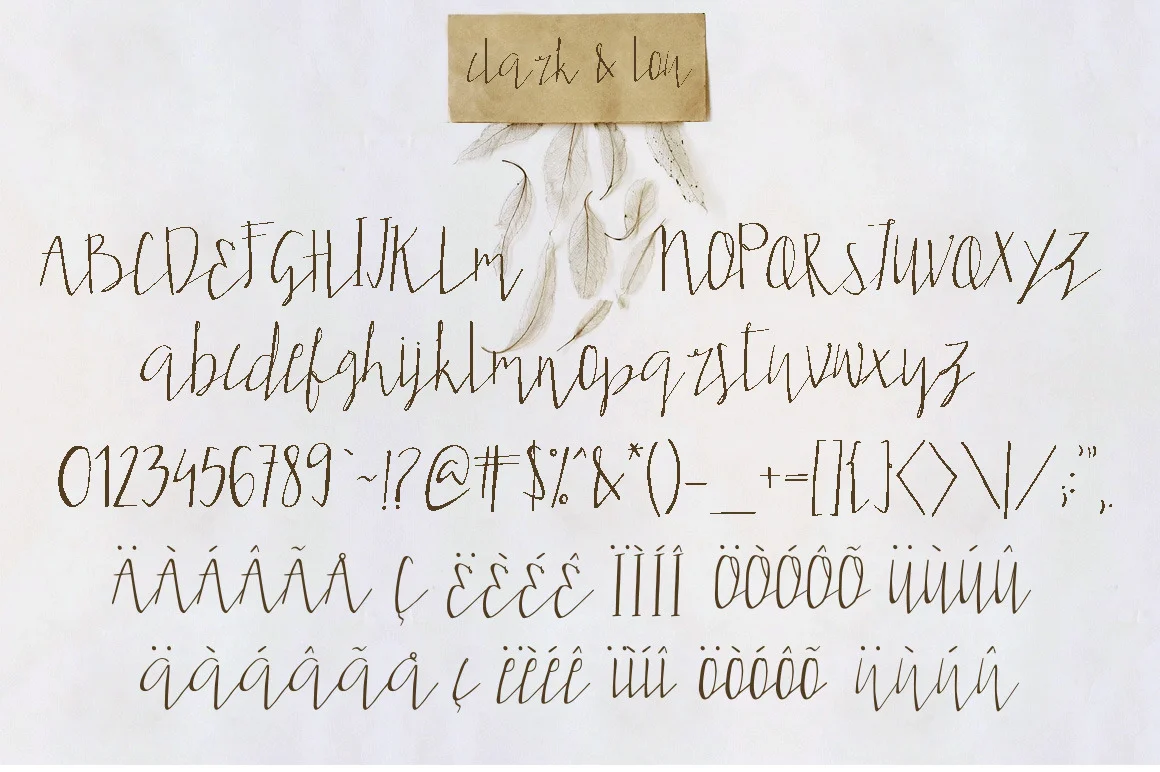 clark & lou
ABCDEFGHIJKLm nOPQRSTUVWXYZ
abcdefghijklmnopqrstuvwxyz
0123456789`~!?@#$%^&*()-_+=[]{}<>\|/:;"',.
ÄÀÁÂÃÅ Ç ËÈÉÊ ÏÌÍÎ ÖÒÓÔÕ ÜÙÚÛ
äàáâãå ç ëèéê ïìíî öòóôõ üùúû